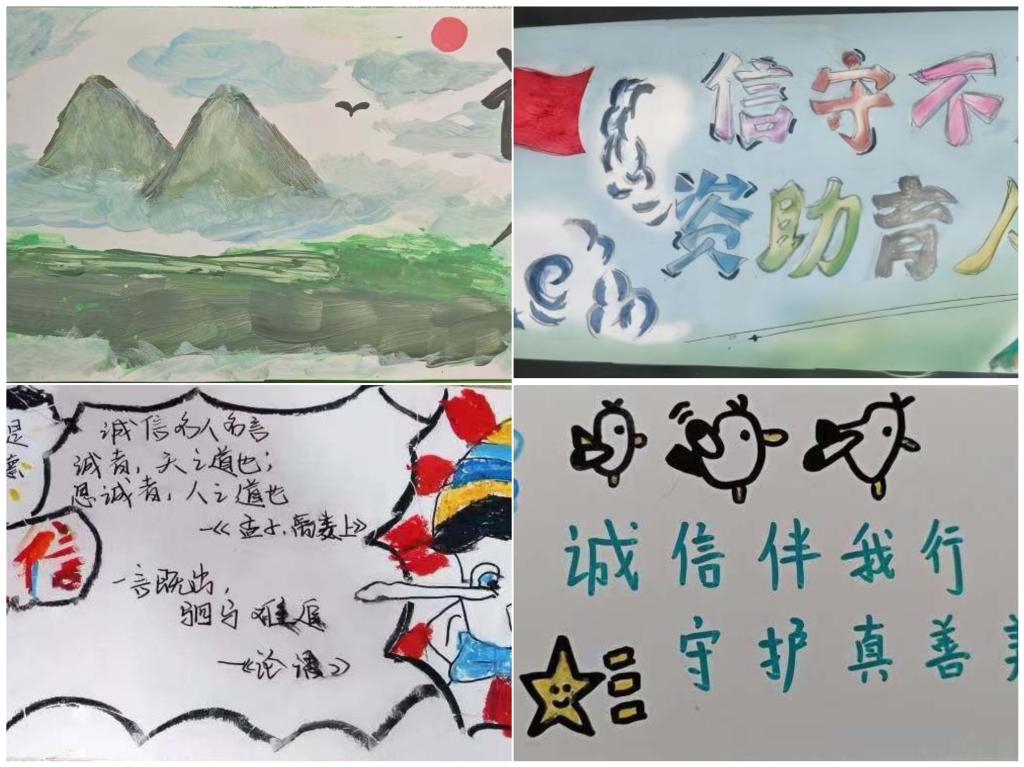 信守不
资助育人
诚信名人名言
诚者，天之道也；
思诚者，人之道也
—《孟子·离娄上》
信
一言既出，
驷马难追
—《论语》
诚信伴我行
守护真善